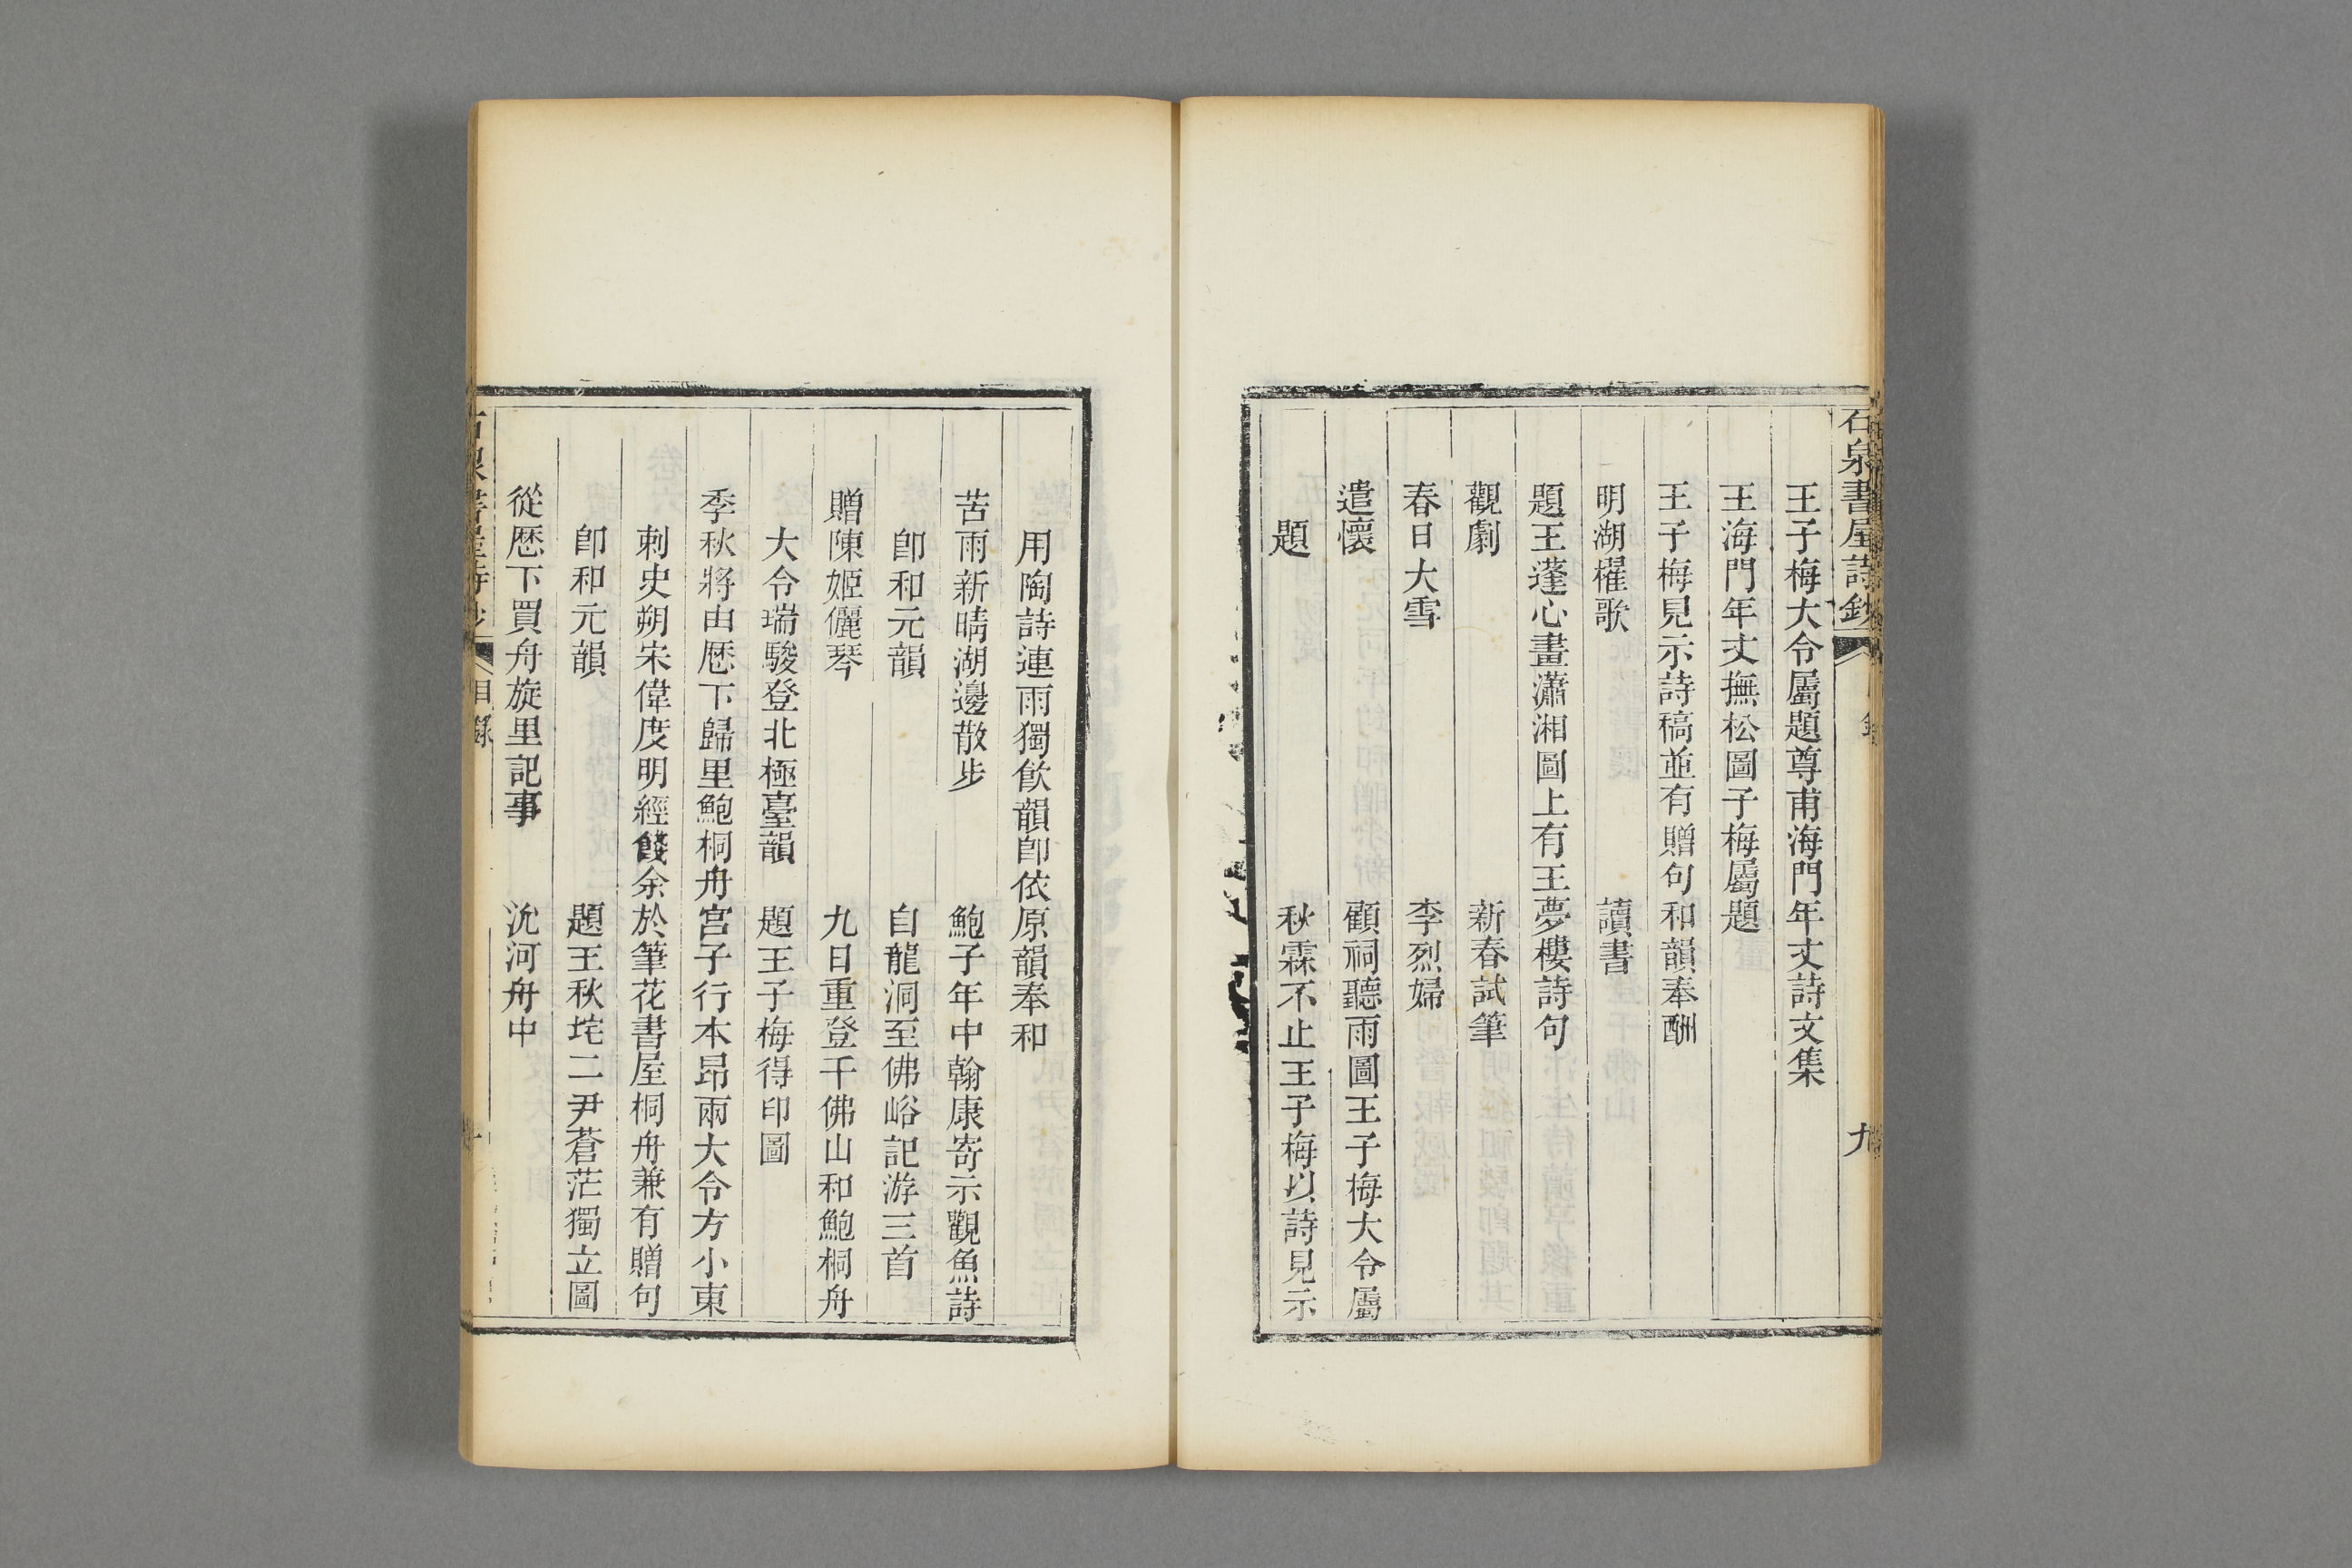 石泉書屋詩鈔 目錄 九
王子梅大令屬題尊甫海門年丈詩文集
王海門年丈撫松圖子梅屬題
王子梅見示詩稿並有贈句和韻奉酬
明湖櫂歌 讀書
題王蓬心畫瀟湘圖上有王夢樓詩句
觀劇 新春試筆
春日大雪 李烈婦
遣懷 顧祠聽雨圖王子梅大令屬
題 秋霖不止王子梅以詩見示
用陶詩連雨獨飲韻卽依原韻奉和
苦雨新晴湖邊散步 鮑子年中翰康寄示觀魚詩
卽和元韻 自龍洞至佛峪記游三首
贈陳姬儷琴 九日重登千佛山和鮑桐舟
大令瑞駿登北極臺韻 題王子梅得印圖
季秋將由歷下歸里鮑桐舟宮子行本昂兩大令方小東
刺史朔宋偉度明經餞余於筆花書屋桐舟兼有贈句
卽和元韻 題王秋垞二尹蒼茫獨立圖
從歷下買舟旋里記事 沇河舟中
石泉書屋詩鈔 目錄